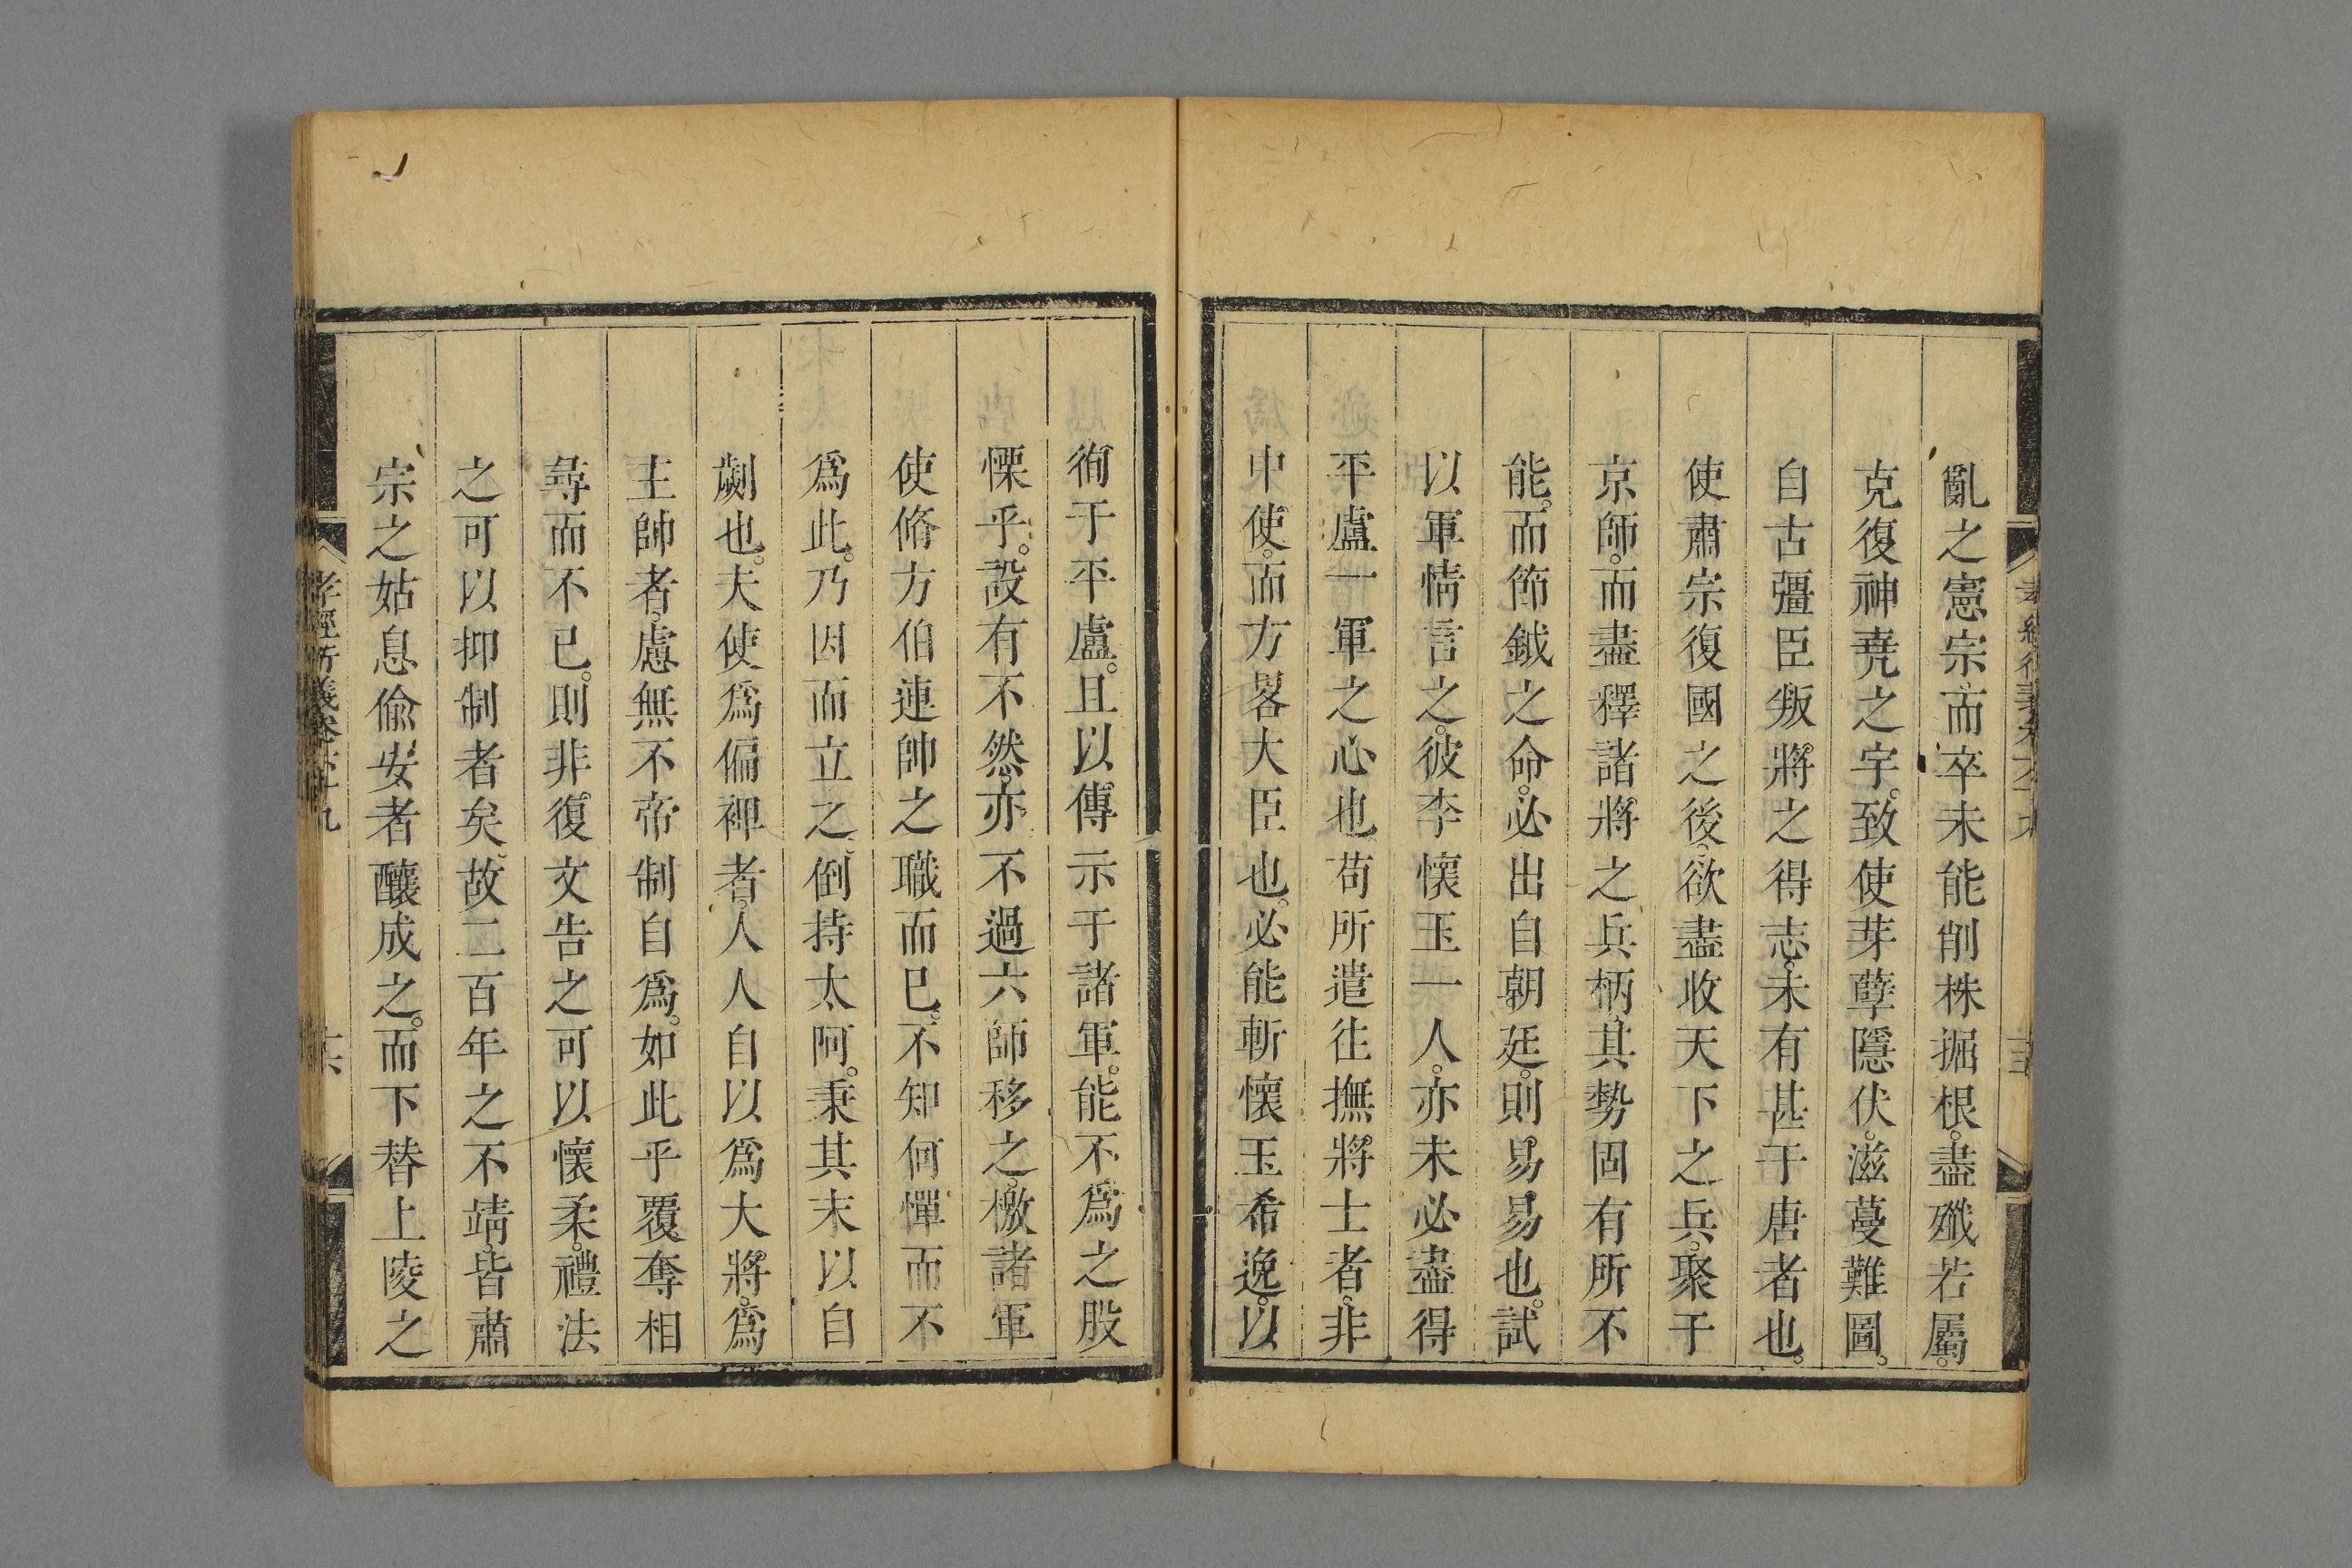 亂之憲宗而卒未能削株掘根。盡殲若屬。
克復神堯之宇。致使芽孽隱伏。滋蔓難圖。
自古彊臣叛將之得志。未有甚于唐者也。
使肅宗復國之後。欲盡收天下之兵。聚于
京師。而盡釋諸將之兵柄。其勢固有所不
能。而節鉞之命。必出自朝廷。則易易也。試
以軍情言之。彼李懷玉一人。亦未必盡得
平盧一軍之心也。苟所遣往撫將士者。非
中使。而方畧大臣也。必能斬懷玉希逸。以
徇于平盧。且以傳示于諸軍。能不爲之股
慄乎。設有不然。亦不過六師移之。檄諸軍
使脩方伯連帥之職而已。不知何憚而不
爲此。乃因而立之。倒持太阿。秉其末以自
劌也。夫使爲偏裨者。人人自以爲大將。爲
主帥者。慮無不帝制自爲。如此乎覆奪相
尋而不已。則非復文告之可以懷柔。禮法
之可以抑制者矣。故二百年之不靖。皆肅
宗之姑息偷安者釀成之。而下替上陵之
孝經衍義卷